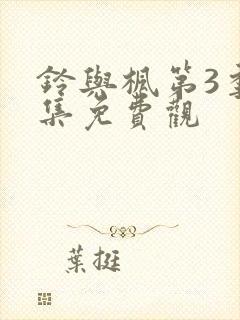 鈴與楓第3季
集免費觀
葉挺